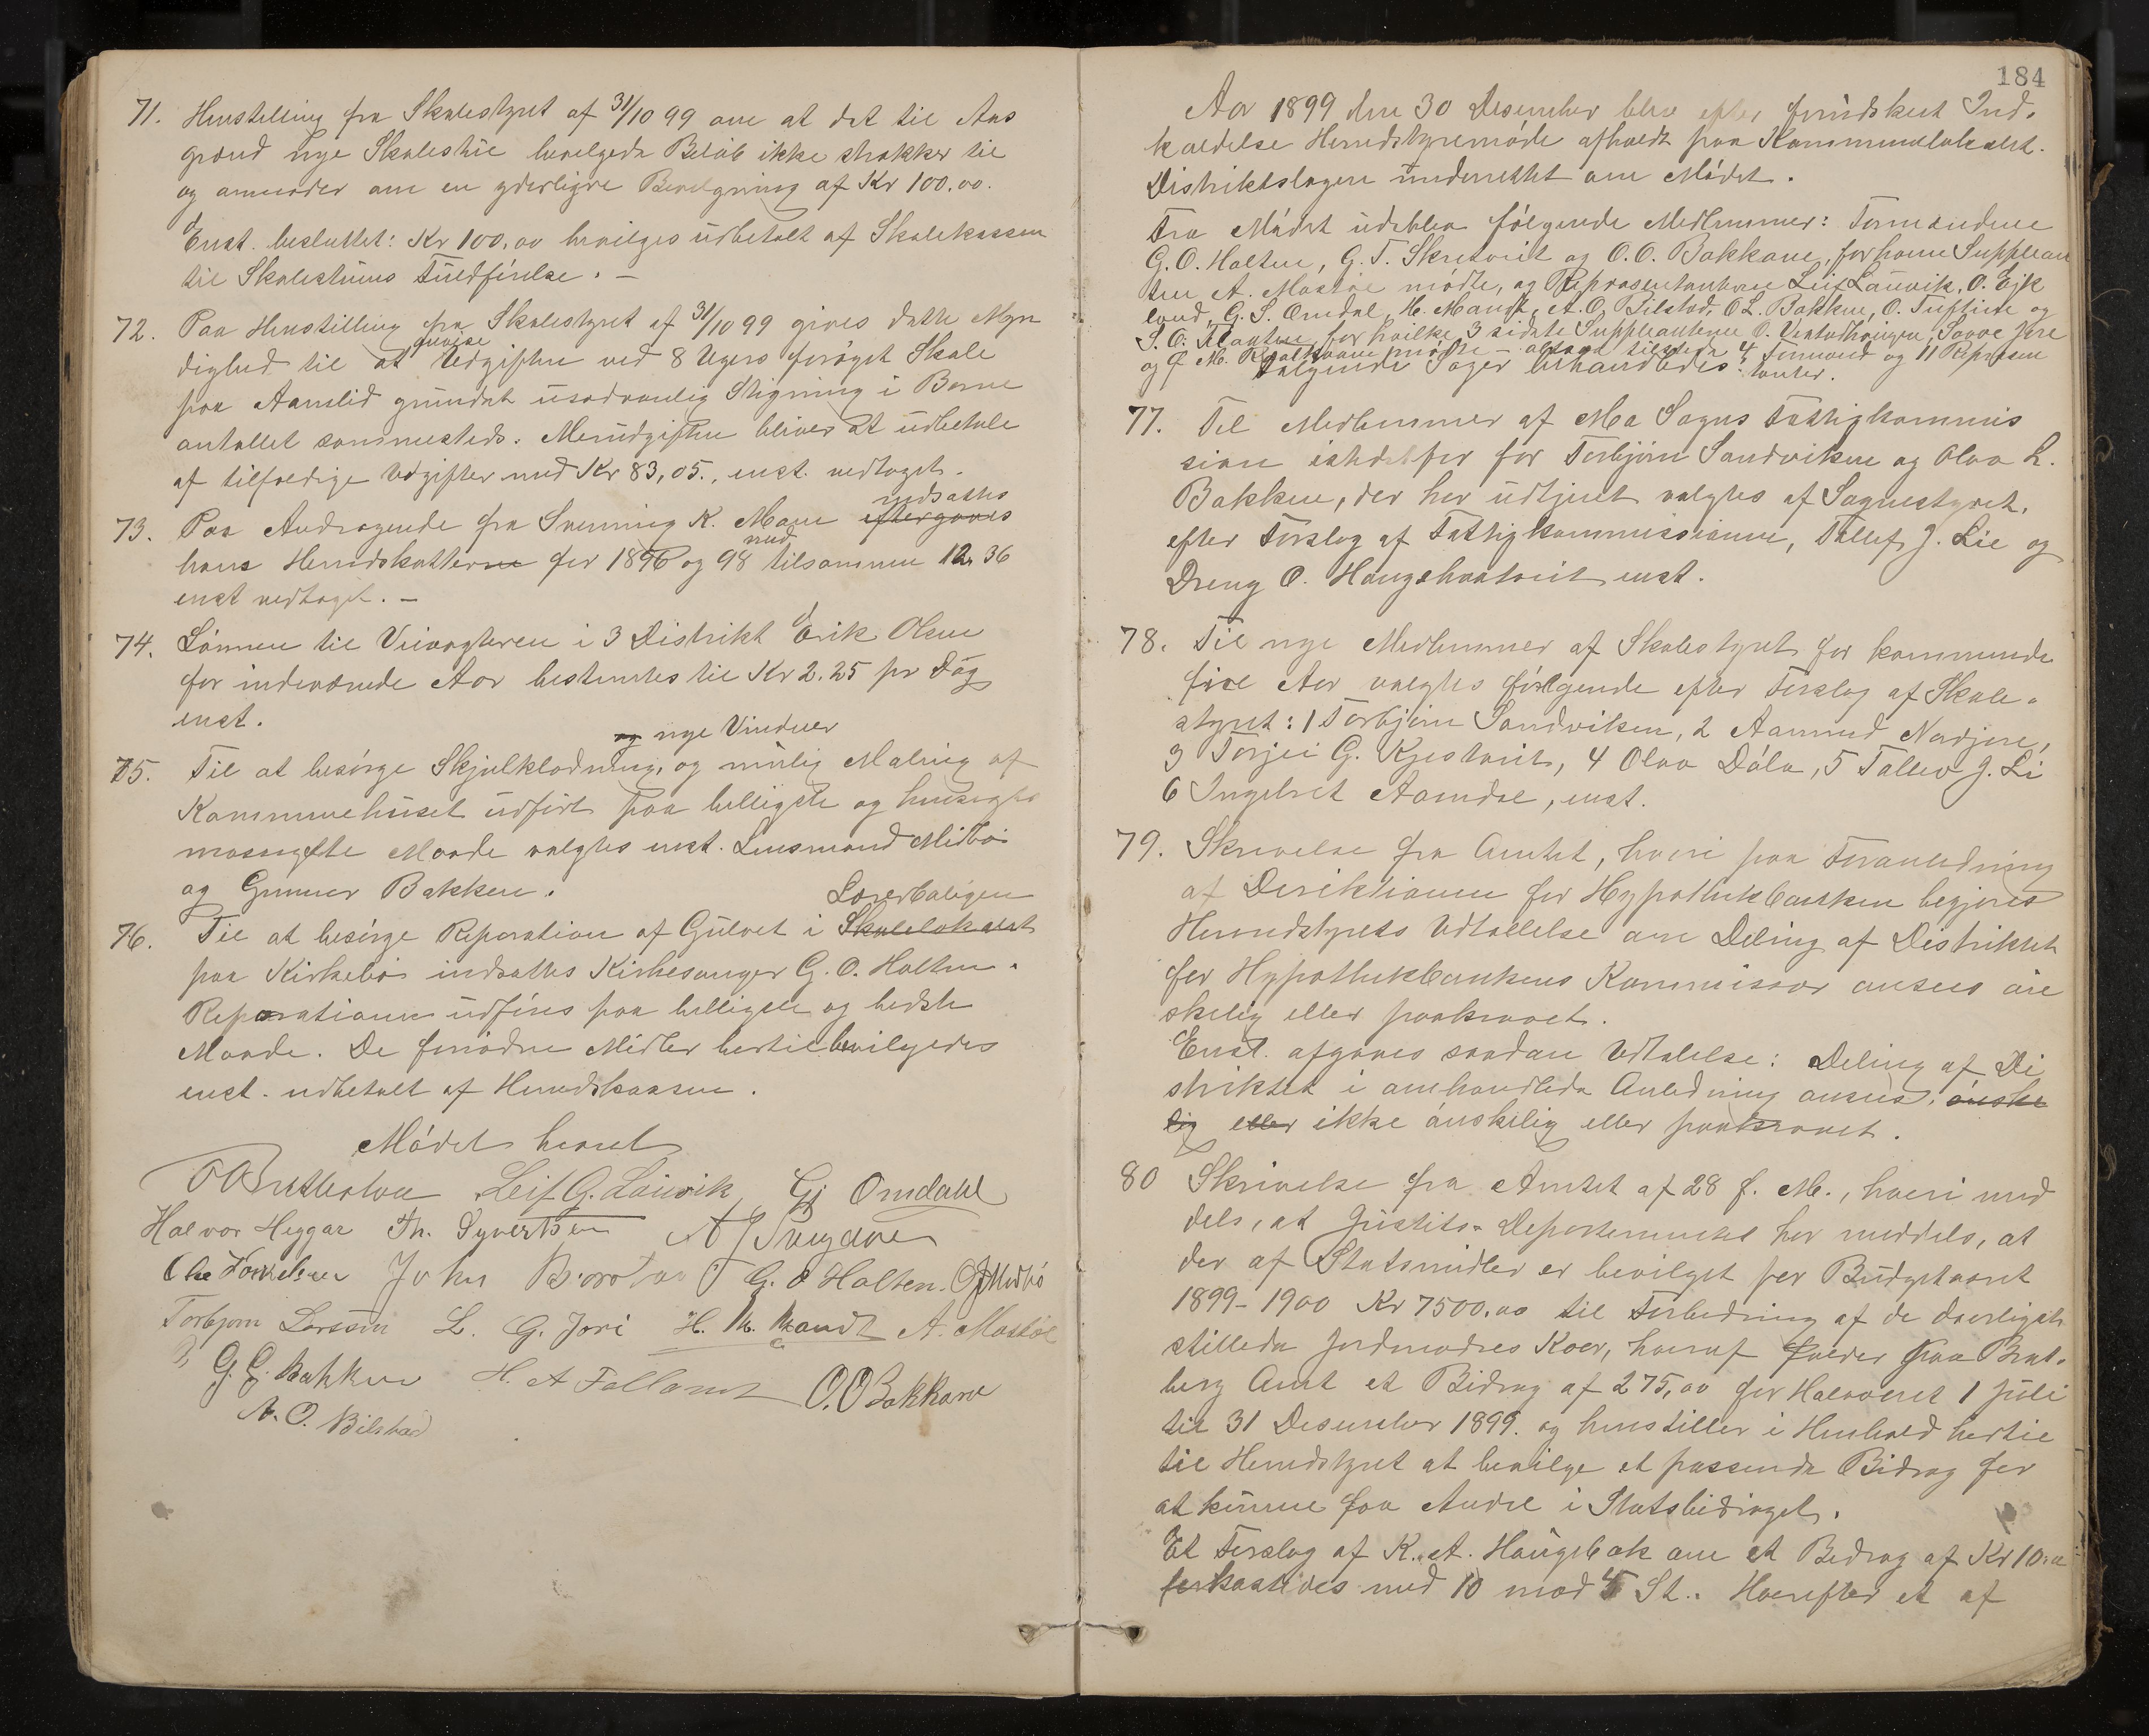 71. Henstelling fra Skolestyret af 31/10 99 om at det til Aas
grænd nye Skolestue bevilgede Beløb ikke strækker til
og anmoder om en yderligre Bevilgning af Kr 100.00.
Enst. besluttet: Kr 100,00 bevilges udbetalt af Skolekassen
til Skolestuens Fuldførelse. –
72. Paa Henstilling fra Skolestyret af 31/10 99 gives dette Myn
dighed til at Udgiften ved 8 Ugers forøget Skole
paa Aamlid grundet usædvanlig Stigning i Barne
antallet sammesteds. Merudgiften bliver at udbetale
af tilfældige Udgifter med Kr 83,05., enst. vedtaget.
nedsattes
73. Paa Andragende fra Svenning K. Moen eftergaves
med
hans Herredskatterne for 1896 og 98 tilsammen 12,36
enst vedtaget. –
74. Lønnen til Veivogteren i 3 Distrikt Erik Olsen
for indeværende Aar bestemtes til Kr 2.25 pr Dag
enst.
og nye Vinduer
75. Til at besørge Skjulklædning, og mulig Maling af
Kommunehuset udført paa billigste og hensigts
mæssigste Maade valgtes enst. Lensmand Midbø
og Gunner Bakken.
Lærerboligen
76. Til at besørge Reparation af Gulvet i Skolelokalet
paa Kirkebø indsattes Kirkesanger G. O. Holten.
Reparationen udføres paa billigste og bedste
Maade. De fornødne Midler hertil bevilgedes
enst. udbetalt af Herredskassen.
Mødet hævet
Leif G. Lauvik Gj Omdahl
Halvor Heggar Th. Syvertsen
Ole Torkelsen John G. O Holten. O J Midbø
Torbjørn Larsson L. G. Jori H. M. Mandt A. Mostøl
G. G. Bakken H. A Folland O. O Bakkane
A. O. Bilstad
184
Aar 1899 den 30 Desember blev efter forudskeet Ind.
kaldelse Herredstyremøde afholdt paa Kommunelokalet.
Distriktslægen underrettet om Mødet.
Fra Mødet udeblev følgende Medlemmer: Formændene
G. O. Holten, G. T. Skretveit og O. O. Bakkane, for hvem Supplean
ten A. Mostøl mødte, og Repræsentanterne Leif Lauvik, O. Ejk
lund, G. S. Omdal, H. Mandt, A. O. Bilstad, O L. Bakken, O. Tuftine og
S. O. for hvilke 3 sidste Suppleanterne O. Jore
og O M. mødte – altsaa tilstede 4 Formænd og 11 Repræsen
Følgende Sager behandledes: tanter.
77. Til Medlemmer af Mo Sogns Fattigkommis
sion istedetfor for Torbjørn Sandviken og Olav L.
Bakken, der har udtjent valgtes af Sognestyret,
efter Forslag af Fattigkommissionen, Tallef J. Lie og
Dreng O. Haugehaatveit enst.
78. Til nye Medlemmer af Skolestyret for kommende
fire Aar valgtes følgende efter Forslag af Skole.
styret: 1 Torbjørn Sandviken, 2 Aamund Nordjore,
3 Torjei G. Kjestveit, 4 Olav Dåla, 5 Tallev J. Li
6 Ingebret Aamdal, enst.
79. Skrivelse fra Amtet, hvori paa Foranledning
af Direktionen for Hypothekbanken begjæres
Herredstyrets Udtallelse om Deling af Distriktet
for Hypothekbankens Kommissær ansees øn
skelig eller paakrævet.
Enst. afgaves saadan Udtalelse: Deling af Di
striktet i omhandlede Anledning ansees. ønske
lig eller ikke ønskelig eller paakrævet.
80 Skrivelse fra Amtet af 28 f. M., hvori med
deles, at Justits-Departementet har meddels, at
der af Statsmidler er bevilget for Budgetaaret
1899-1900 Kr 7500.00 til Forbedring af de daarligst
stillede Jordmødres Kaar, hvoraf falder paa Brat-
berg Amt et Bidrag af 275,00 for Halvaaret 1 Juli
til 31 Desember 1899. og henstiller i Henhold hertil
til Herredstyret at bevilge et passende Bidrag for
at kunne faa Andel i Statsbidraget.
Et Forslag af K. A. Haugebak om et Bidrag af Kr 10.00
forkastedes med 10 mod 5 St.. Hverefter et af